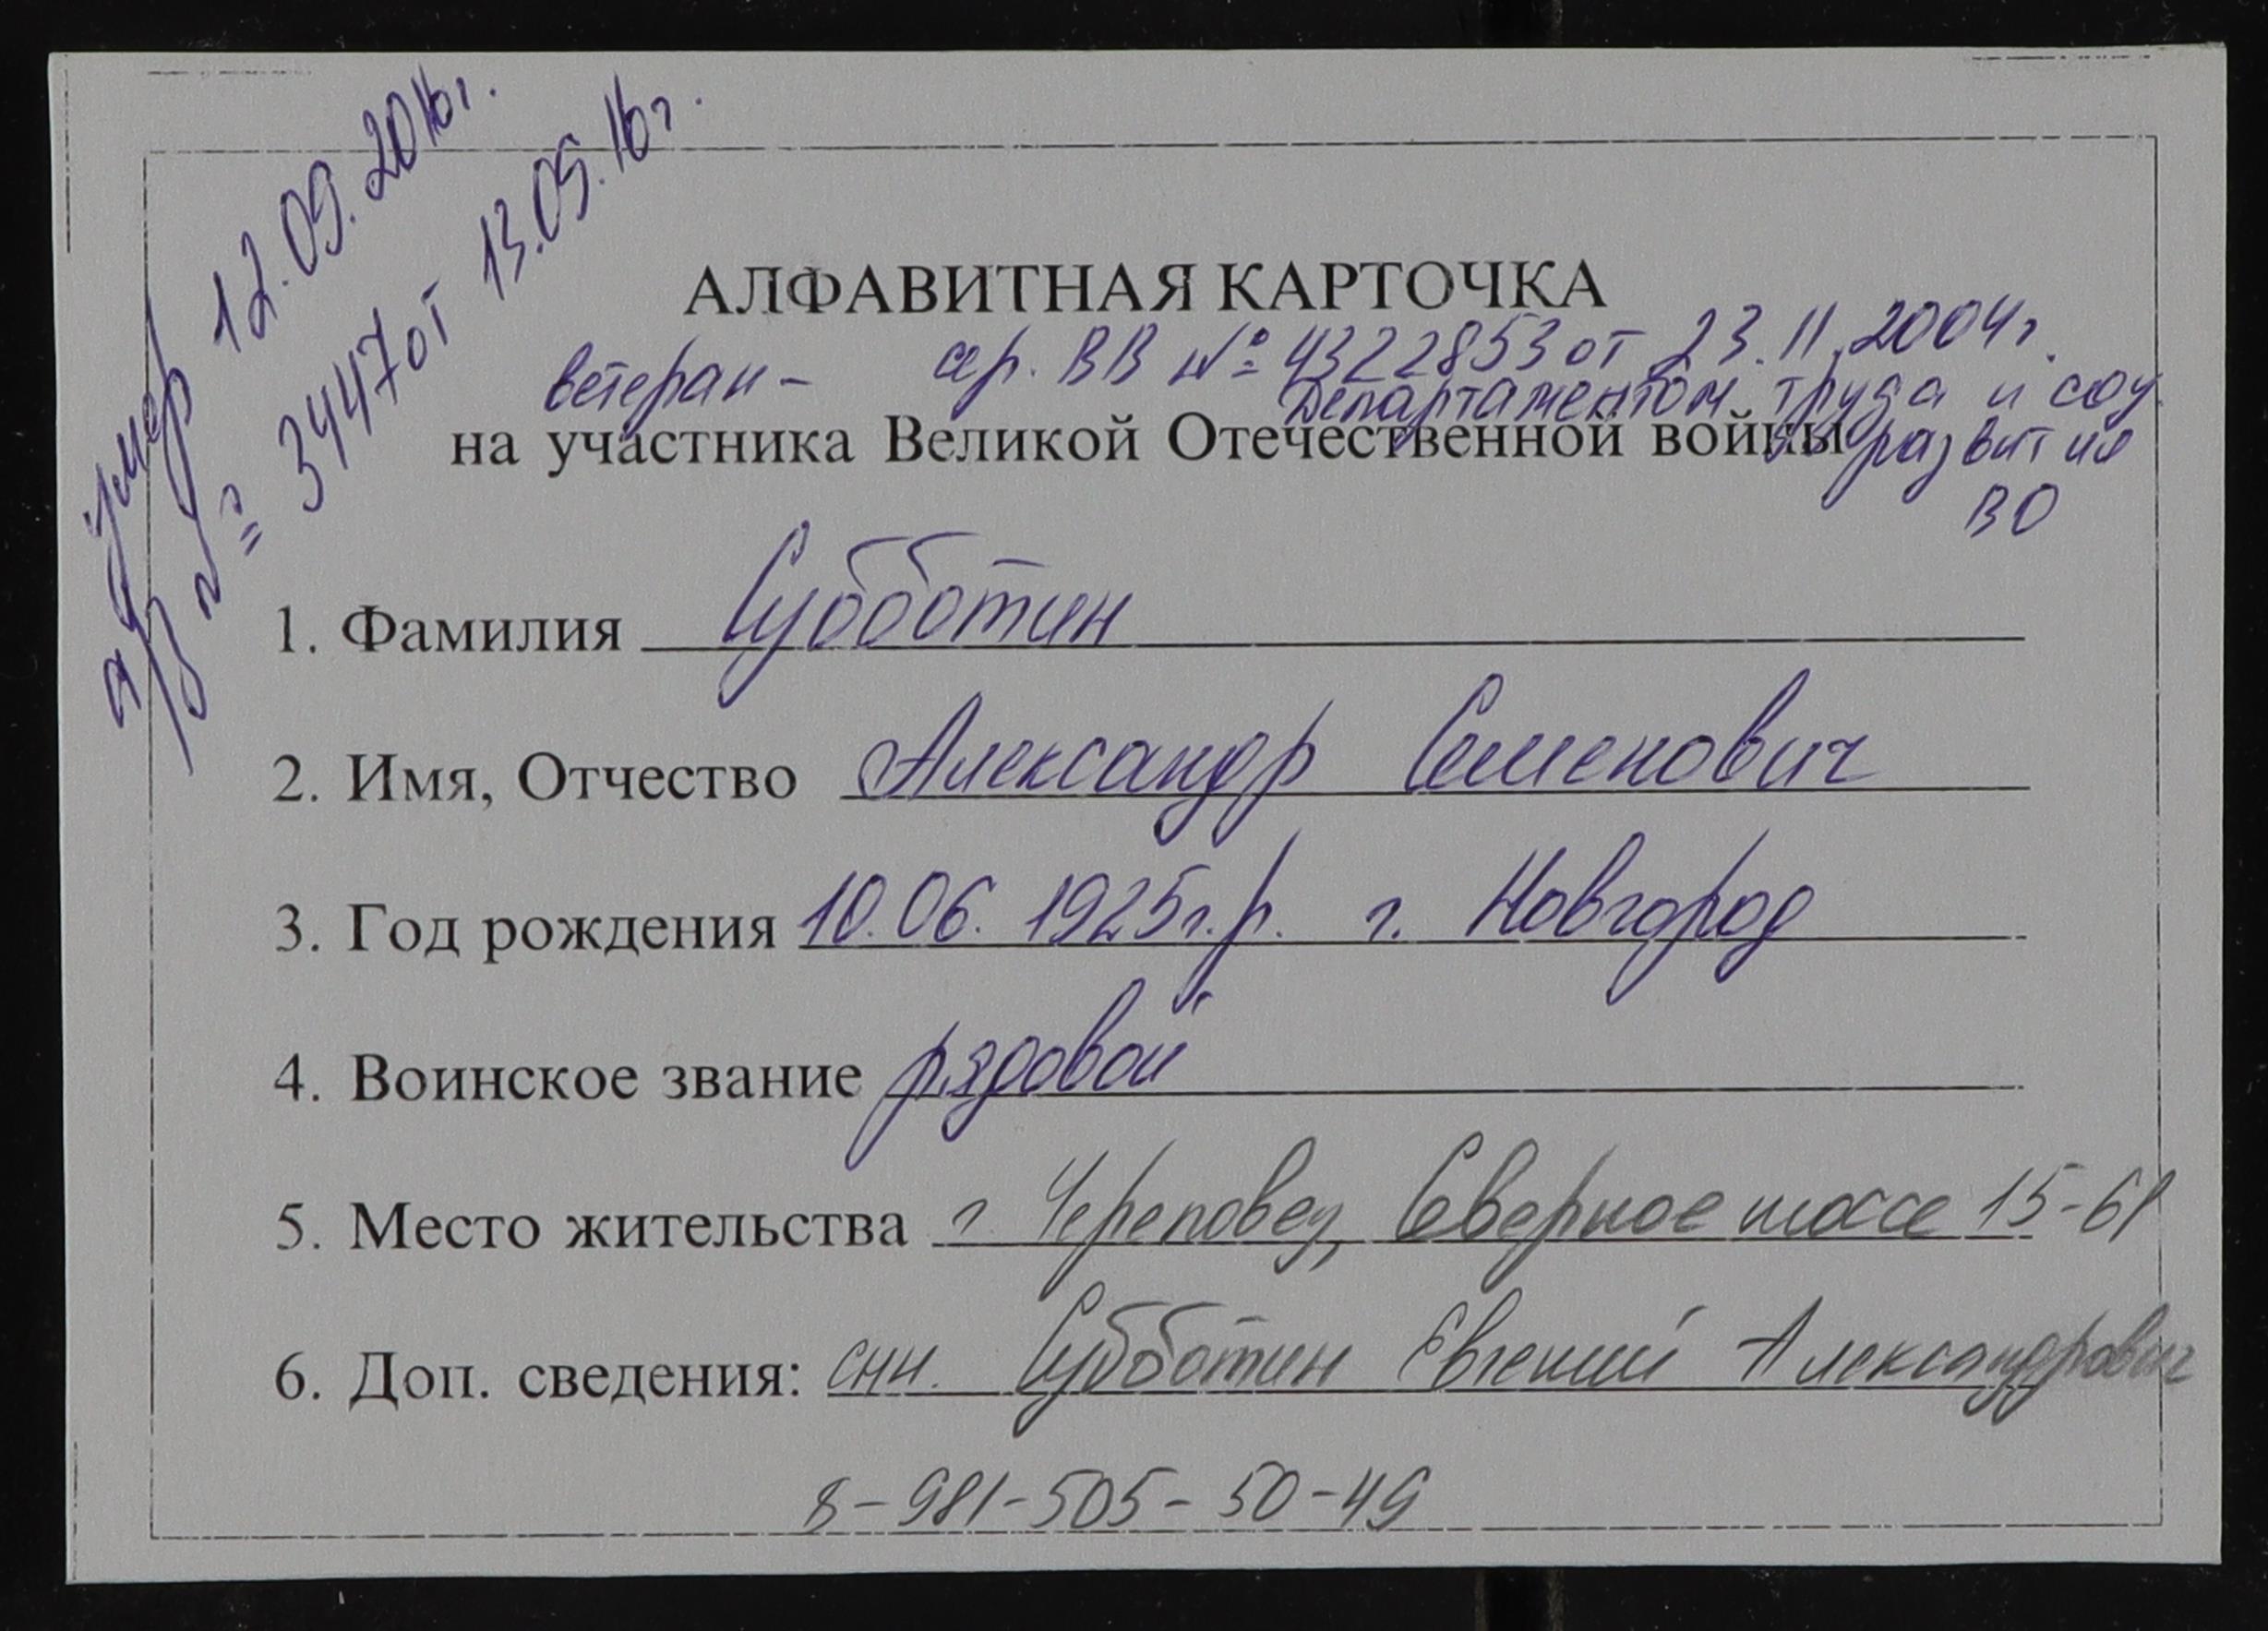 умер 12.09.2016г.
а/з № 3447 от 13.09.16г.
АЛФАВИТНАЯ КАРТОЧКА
ветеран - сер. ВВ № 4322853 от 23.11.2004г.
Департаментом труда и соц.
на участника Великой Отечественной войны
развития
ВО
1. Фамилия Субботин
2. Имя, Отчество Александр Семенович
3. Год рождения 10.06.1925г.р. г. Новгород
4. Воинское звание рядовой
5. Место жительства г. Череповец, Северное шоссе 15-61
6. Доп. сведения: сын. Субботин Евгений Александрович
8-981-505-50-49